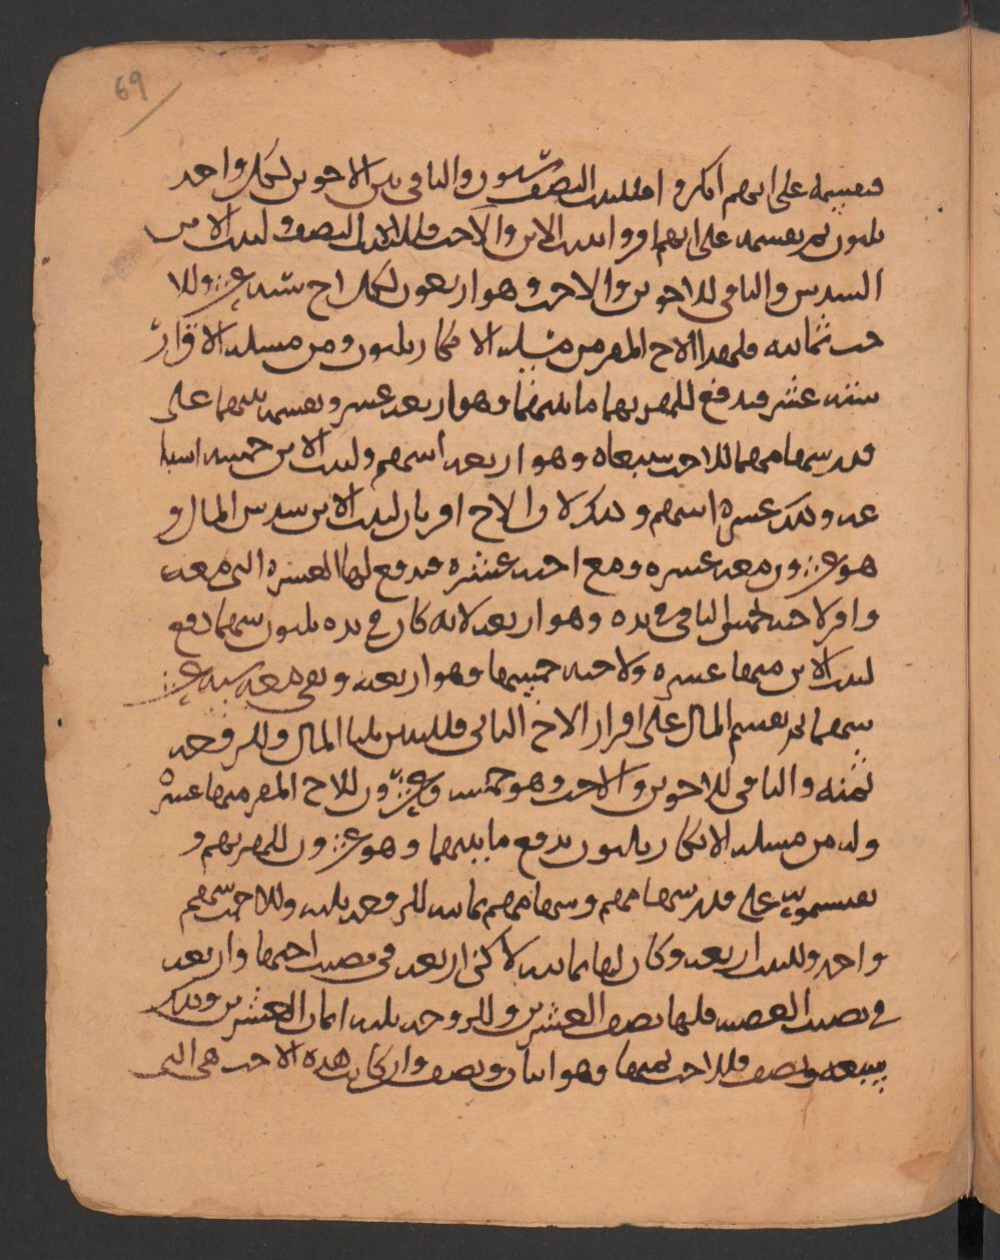 69
فنقسمه على انهم انكروا فللبنت النصف ستون والباقى بين الاخوين لكل واحد
ثلثون ثم نقسمه على انهم اقروا ببنت الابن والاخت فللابنة النصف ولبنت الابن
السدس والباقى للاخوين والاخت وهو اربعون لكل اخ ستة عشر وللا
خت ثمانية فلهذا الاخ المقر من مسئلة الانكار ثلثون ومن مسئلة الاقرار
ستة عشر فيدفع للمقر بهما ما بينهما وهو اربعة عشر ونقسمه بينهما على
قدر سهامهما للاخت سبعاه وهو اربعة اسهم ولبنت الابن خمسة اسبا
عه وذلك عشرة اسهم وذلك لان الاخ اقر بان لبنت الابن سدس المال و
هو عشرون معه عشرة ومع اخته عشرة فيدفع لها العشرة التى معه
واقر لاخته بخمس الباقى فى يده وهو اربعة لانه كان فى يده ثلثون سهما دفع
لبنت الابن منها عشرة ولاخته خمسها وهو اربعة وبقى معه ستة عشر
سهما ثم نقسم المال على اقرار الاخ الثانى فللبنتين ثلثا المال وللزوجة
ثمنه والباقى للاخوين والاخت وهو خمسة وعشرون للاخ المقر منها عشرة
وله من مسئلة الانكار ثلثون يدفع ما بينهما وهو عشرون للمقر بهم و
يقسمونه على قدر سهامهم وسهامهم ثمانية للزوجة ثلثة وللاخت سهم
واحد وللبنت اربعة وكان لها ثمانية لاكن اربعة فى نصيب اختها واربعة
فى نصيب العصبة فلها نصف العشرين وللزوجة ثلثة اثمان العشرين وذلك
سبعة ونصف وللاخت ثمنها وهو اثنان ونصف وان كانت هذه الاخت هى التى